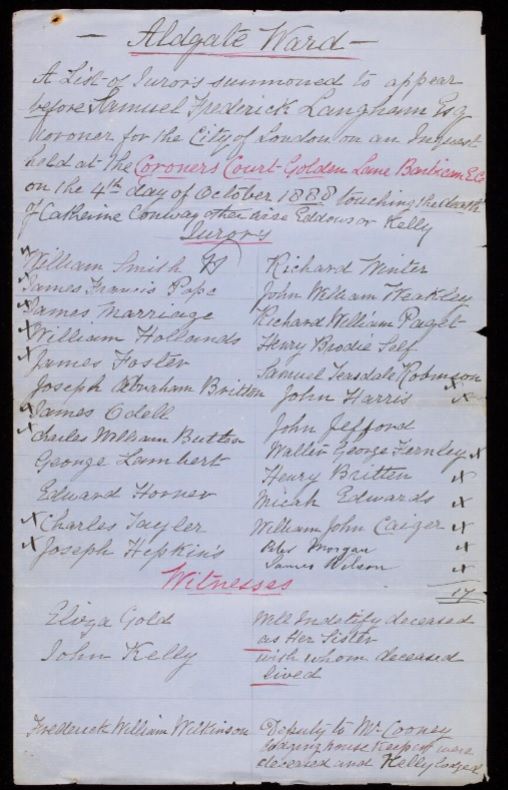 — Aldgate Ward —
A List of Jurors summoned to appear
before Samuel Frederick Langham Esq
Coroner for the City of London on an Inquest
held at the Coroners Court Golden Lane Barbican E.C.
on the 4th day of October 1888 touching the death
of Catherine Conway otherwise Eddows or Kelly
Jurors
x William Smith
x James Francis Pape
x James Marriage
x William Hollands
x James Foster
Joseph Abraham Britton
x James Odell
x Charles William Button
George Lambert
Edward Horner
x Charles Tayler
x Joseph Hepkins
Richard Winter
John William Weakley
Richard William Paget
Henry Brodie Self
Samuel Teasdale Robinson x
John Harris x
John Jefford
Walter George Fernley x
Henry Britten x
Micah Edwards x
William John Caiger x
Morgan x
James Wilson x
17
Witnesses
Eliza Gold
Will Indetify deceased
as Her Sister
John Kelly
with whom deceased
lived
Frederick William Wilkinson
Deputy to Mr Cooney
Lodging house Keeper were
deceased and Kelly lodged